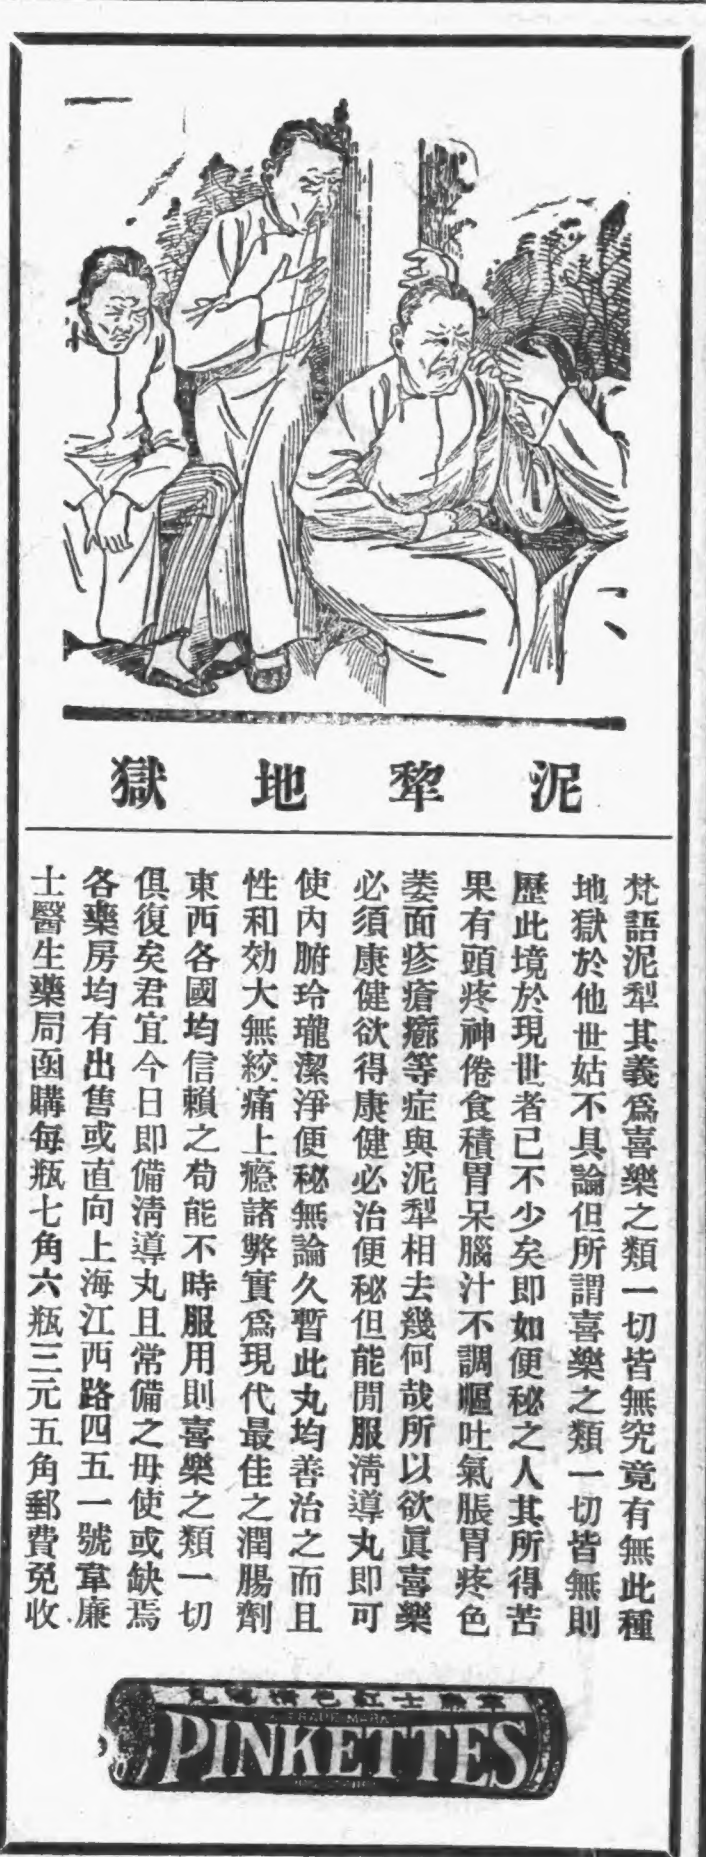 泥犂地獄
梵語泥犁其義爲喜樂之類一切皆無究竟有無此種
地獄於他世姑不具論但所謂喜樂之類一切皆無則
歷此境於現世者已不少矣即如便秘之人其所得苦
果有頭疼神倦食積胃呆腦汁不調嘔吐氣脹胃疼色
萎面疹瘡癤等症與泥犁相去幾何哉所以欲眞喜樂
必須康健欲得康健必治便秘但能閒服淸導丸即可
使內腑玲瓏潔淨便秘無論久暫此丸均善治之而且
性和効大無絞痛上癮諸弊實爲現代最佳之潤腸劑
東西各國均信賴之苟能不時服用則喜樂之類一切
俱復矣君宜今日即備淸導丸且常備之毋使或缺焉
各藥房均有出售或直向上海江西路四五一號韋廉
士醫生藥局函購每瓶七角六瓶三元五角郵費免收
韋廉士紅色淸導丸
TRADE MARK
PINKETTES